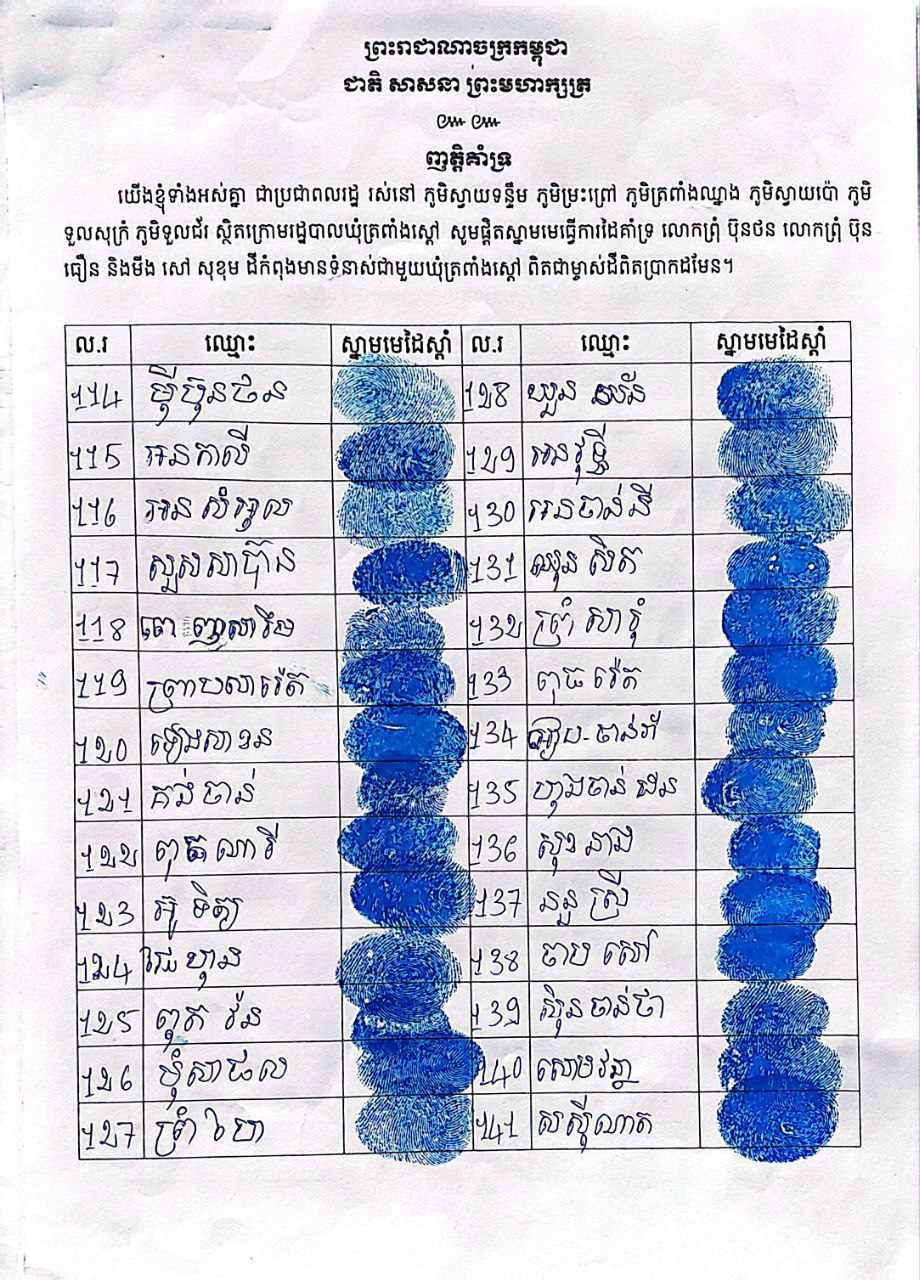 ព្រះរាជាណាចក្រកម្ពុជា
ជាតិ សាសនា ព្រះមហាក្សត្រ
ញត្តិគាំទ្រ
យើងខ្ញុំទាំងអស់គ្នា ជាប្រជាពលរដ្ឋ រស់នៅ ភូមិស្វាយទន្ទឹម ភូមិម្រះព្រៅ ភូមិត្រពាំងឈ្នាង ភូមិស្វាយប៉ោ ភូមិ
ទួលសុក្រំ ភូមិទួលជ័រ ស្ថិតក្រោមរដ្ឋបាលឃុំត្រពាំងស្តៅ សូមផ្តិតស្នាមមេធ្វើការដៃគាំទ្រ លោកព្រុំ ប៊ុនថន លោកព្រុំ ប៊ុន
ធឿន និងមីង សៅ សុខុម ដីកំពុងមានទំនាស់ជាមួយឃុំត្រពាំងស្តៅ ពិតជាម្ចាស់ដីពិតប្រាកដមែន។
ល.រ ឈ្មោះ ស្នាមមេដៃស្តាំ ល.រ ឈ្មោះ ស្នាមមេដៃស្តាំ
114 ម៉ី ប៊ុនថន 128 ឃួន
115 អនកាលី 129 អនវុទ្ធី
116 អន សំអូល 130 អនចាន់នី
117 សួសសាប៊ាន 131 ឈុន សិត
118 ពេញសារឹម 132 ព្រំ សាវុំ
119 ព្រាបសារ៉េត 133 ពុធ រ៉េត
120 ទៀងសាខន 134
121 គង់ ចាន់ 135 ហុងចាន់ ថន
122 ពុត ណារី 136 សុខ នាង
123 អ៊ូ ទិត្យ 137 ននួ ស្រី
124 ហុន 138 ចាប សៅ
125 ពុត វ៉ន 139 ស៊ិនចាន់ថា
126 ម៉ុំសាផល 140 សោមវណ្ណា
127 ព្រំ 141 សស៊ីណាត